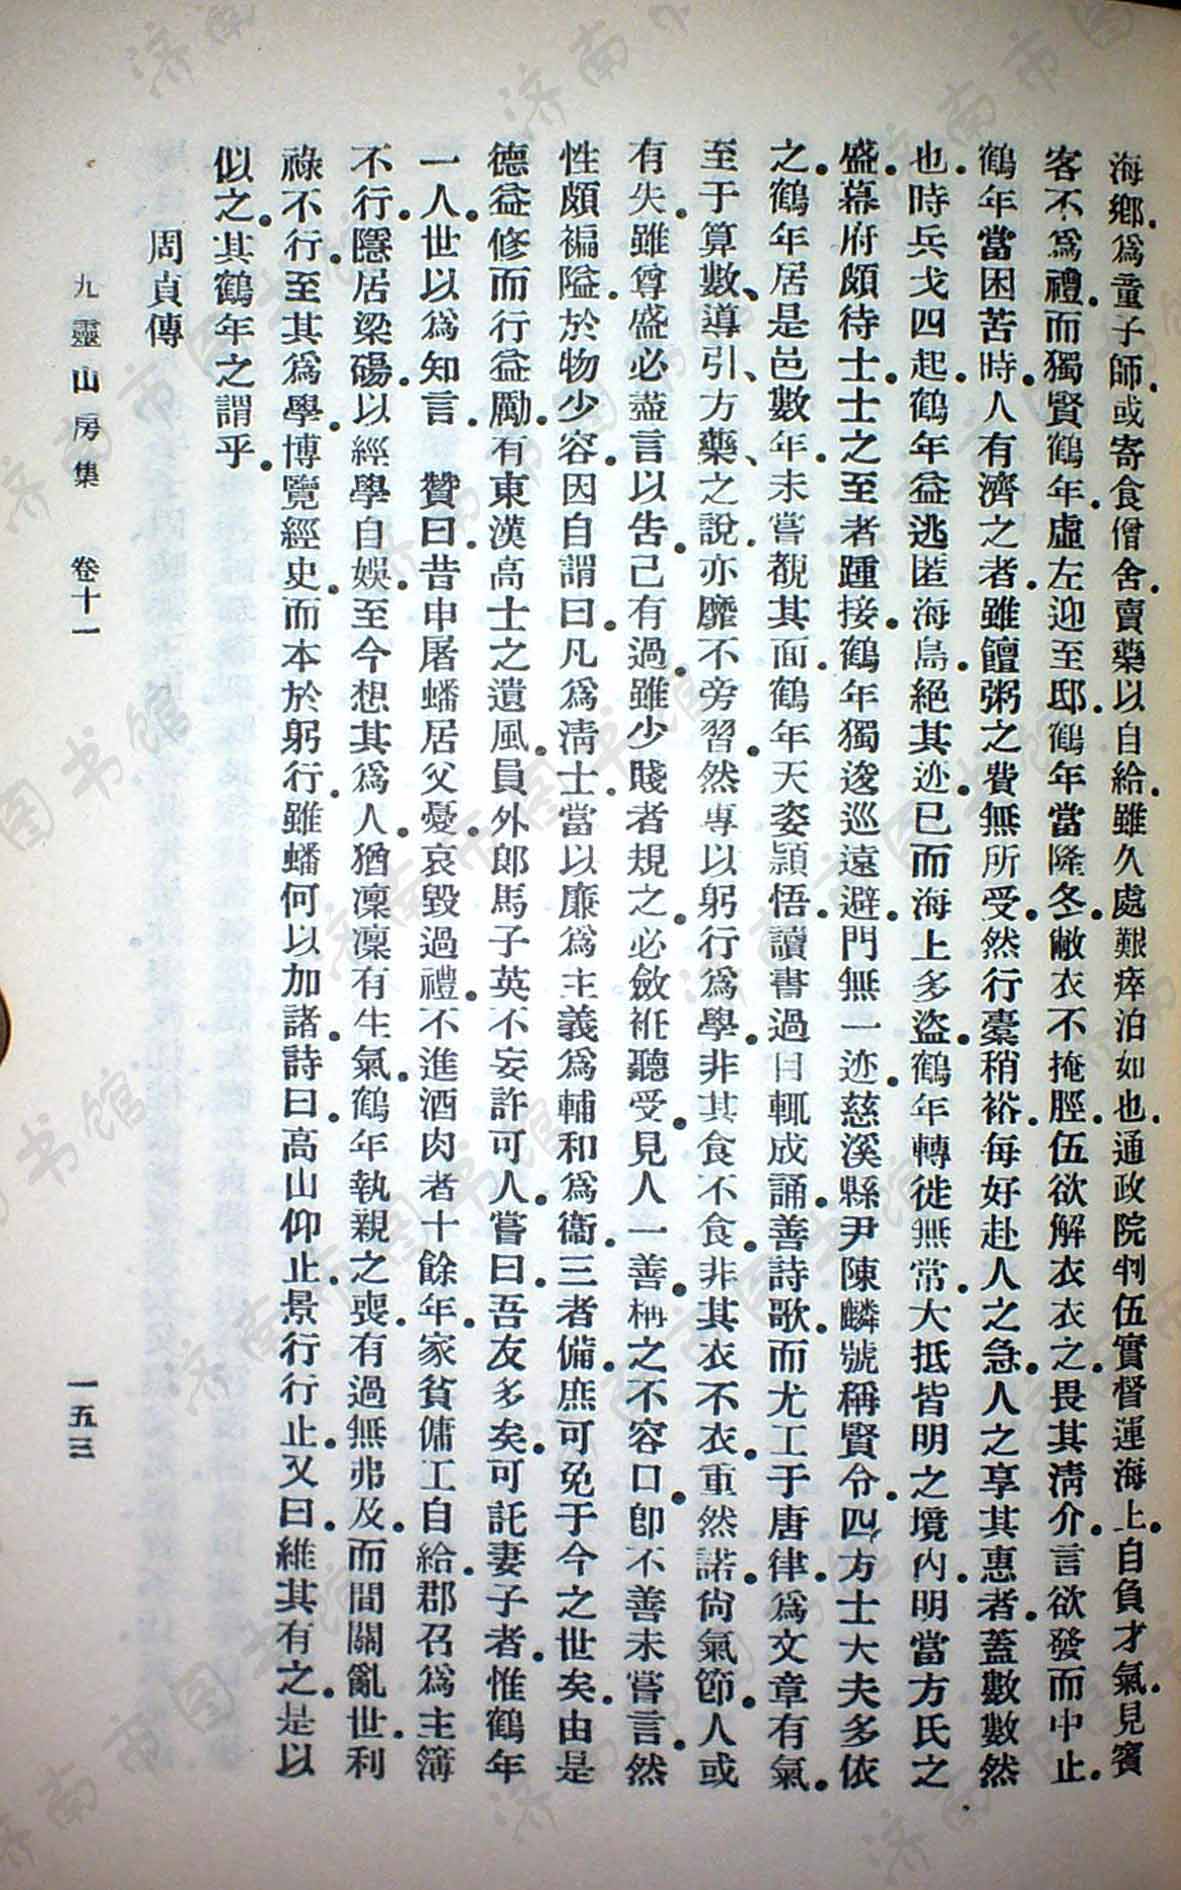 海鄉．爲童子師．或寄食僧舍．賣藥以自給．雖久處艱瘁泊如也．通政院判伍實督運海上．自負才氣．見賓
客不爲禮．而獨賢鶴年．虛左迎至邸．鶴年當隆冬．敝衣不掩脛．伍欲解衣衣之．畏其淸介．言欲發而中止．
鶴年當困苦時．人有濟之者．雖饘粥之費無所受．然行橐稍裕．每好赴人之急．人之享其惠者．蓋數數然
也．時兵戈四起．鶴年益逃匿海島．絕其迹．已而海上多盜．鶴年轉徙無常．大抵皆明之境內．明當方氏之
盛．幕府頗待士．士之至者踵接．鶴年獨逡巡遠避．門無一迹．慈溪縣尹陳麟號稱賢令．四方士大夫多依
之．鶴年居是邑數年．未嘗覩其面．鶴年天姿頴悟．讀書過目輒成誦．善詩歌．而尤工于唐律．爲文章有氣．
至于算數、導引、方藥、之說．亦靡不旁習．然專以躬行爲學．非其食不食．非其衣不衣．重然諾．尙氣節．人或
有失．雖尊盛必盡言以告．己有過．雖少賤者規之．必斂衽聽受．見人一善．稱之不容口．卽不善未嘗言．然
性頗褊隘．於物少容．因自謂曰．凡爲淸士．當以廉爲主義爲輔和爲衞．三者備．庶可免于今之世矣．由是
德益修而行益勵．有東漢高士之遺風．員外郎馬子英不妄許可人．嘗曰．吾友多矣．可託妻子者．惟鶴年
一人．世以爲知言．　贊曰．昔申屠蟠居父憂．哀毀過禮．不進酒肉者十餘年．家貧傭工自給．郡召爲主簿
不行．隱居梁碭．以經學自娛．至今想其爲人．猶凜凜有生氣．鶴年執親之喪．有過無弗及．而間關亂世．利
祿不行．至其爲學．博覽經史．而本於躬行．雖蟠何以加諸．詩曰．高山仰止．景行行止．又曰．維其有之．是以
似之．其鶴年之謂乎．
周貞傳
九靈山房集　卷十一
一五三
济南市图书馆